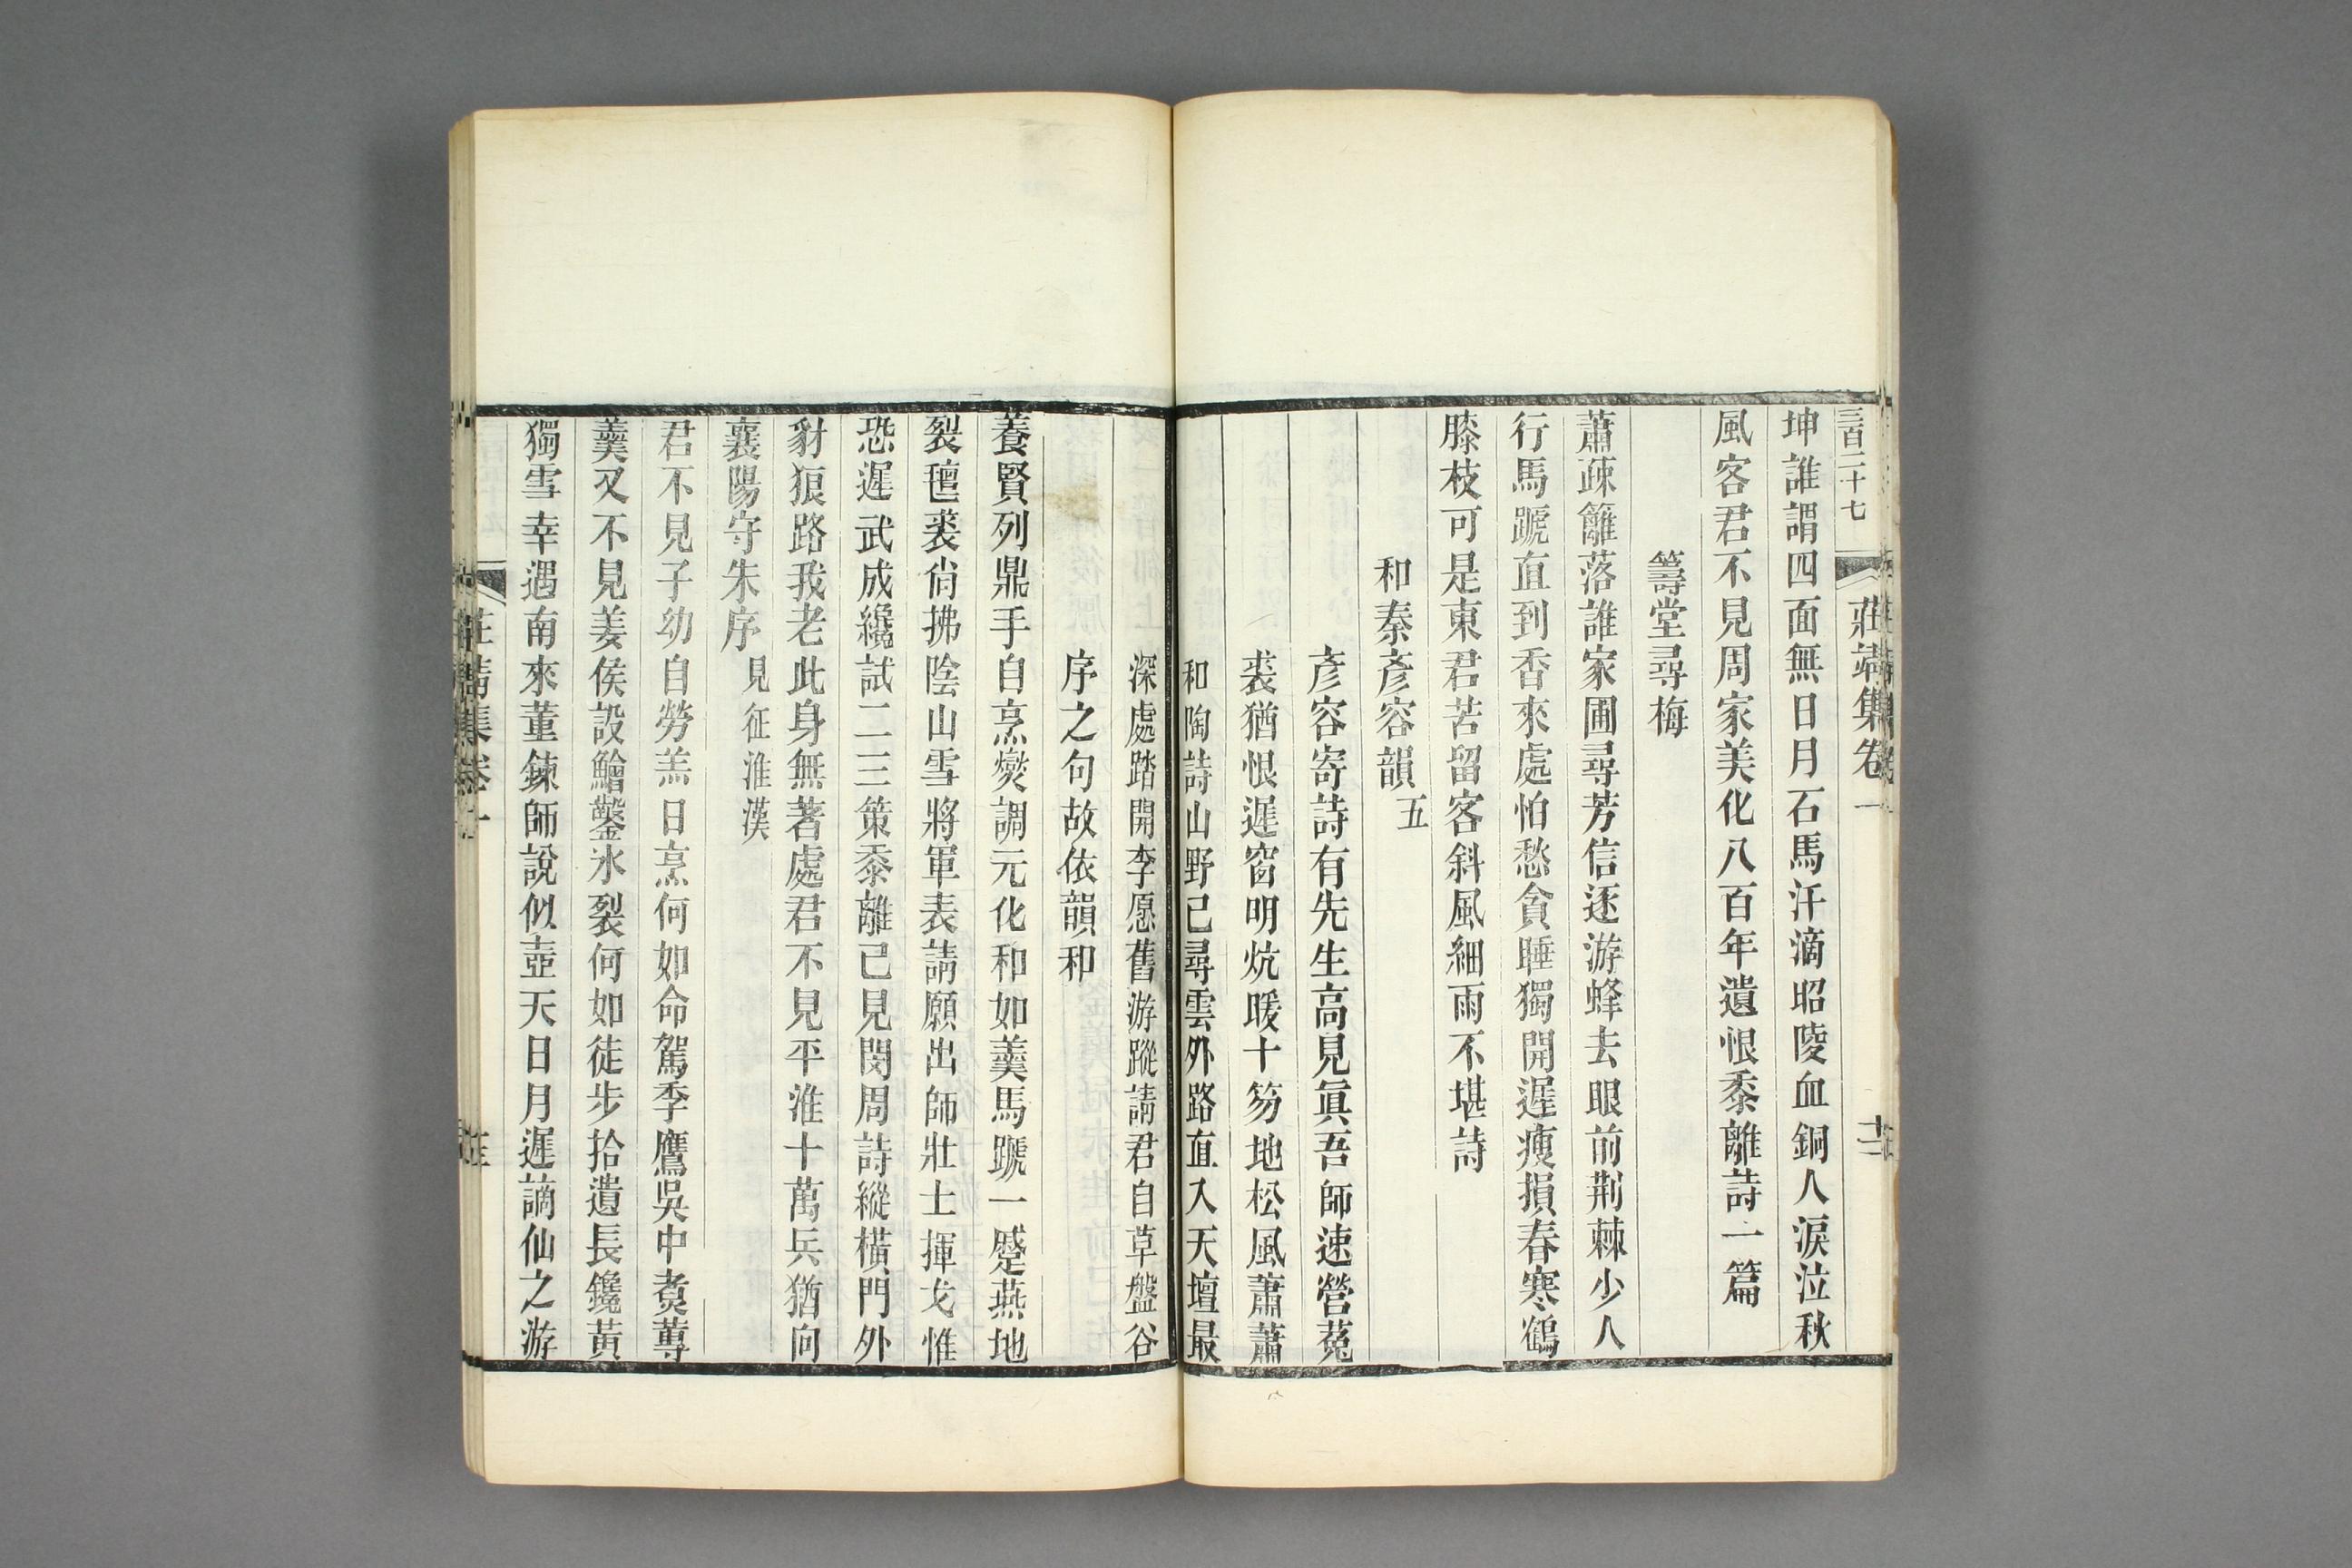 三百二十七
莊靖集卷一
十二
坤誰謂四面無日月石馬汗滴昭陵血銅人淚泣秋
風客君不見周家美化八百年遺恨黍離詩一篇
籌堂尋梅
蕭疎籬落誰家圃尋芳信逐游蜂去眼前荆棘少人
行馬蹏直到香來處怕愁貪睡獨開遲瘦損春寒鶴
膝枝可是東君苦留客斜風細雨不堪詩
和秦彥容韻五
彥容寄詩有先生高見眞吾師速營菟
裘猶恨遲窗明炕暖十笏地松風蕭蕭
和陶詩山野已尋雲外路直入天壇最
深處踏開李愿舊游蹤請君自草盤谷
序之句故依韻和
養賢列鼎手自烹爕調元化和如羹馬蹏一蹙燕地
裂氊裘尙拂陰山雪將軍表請願出師壯士揮戈惟
恐遲武成纔試二三策黍離已見閔周詩縱橫門外
豺狼路我老此身無著處君不見平淮十萬兵猶向
襄陽守朱序見征淮漢
君不見子幼自勞羔日烹何如命駕季鷹吳中煑蓴
羹又不見姜侯設鱠鑿氷裂何如徒步拾遺長鑱黃
獨雪幸遇南來董鍊師說似壺天日月遲謫仙之游